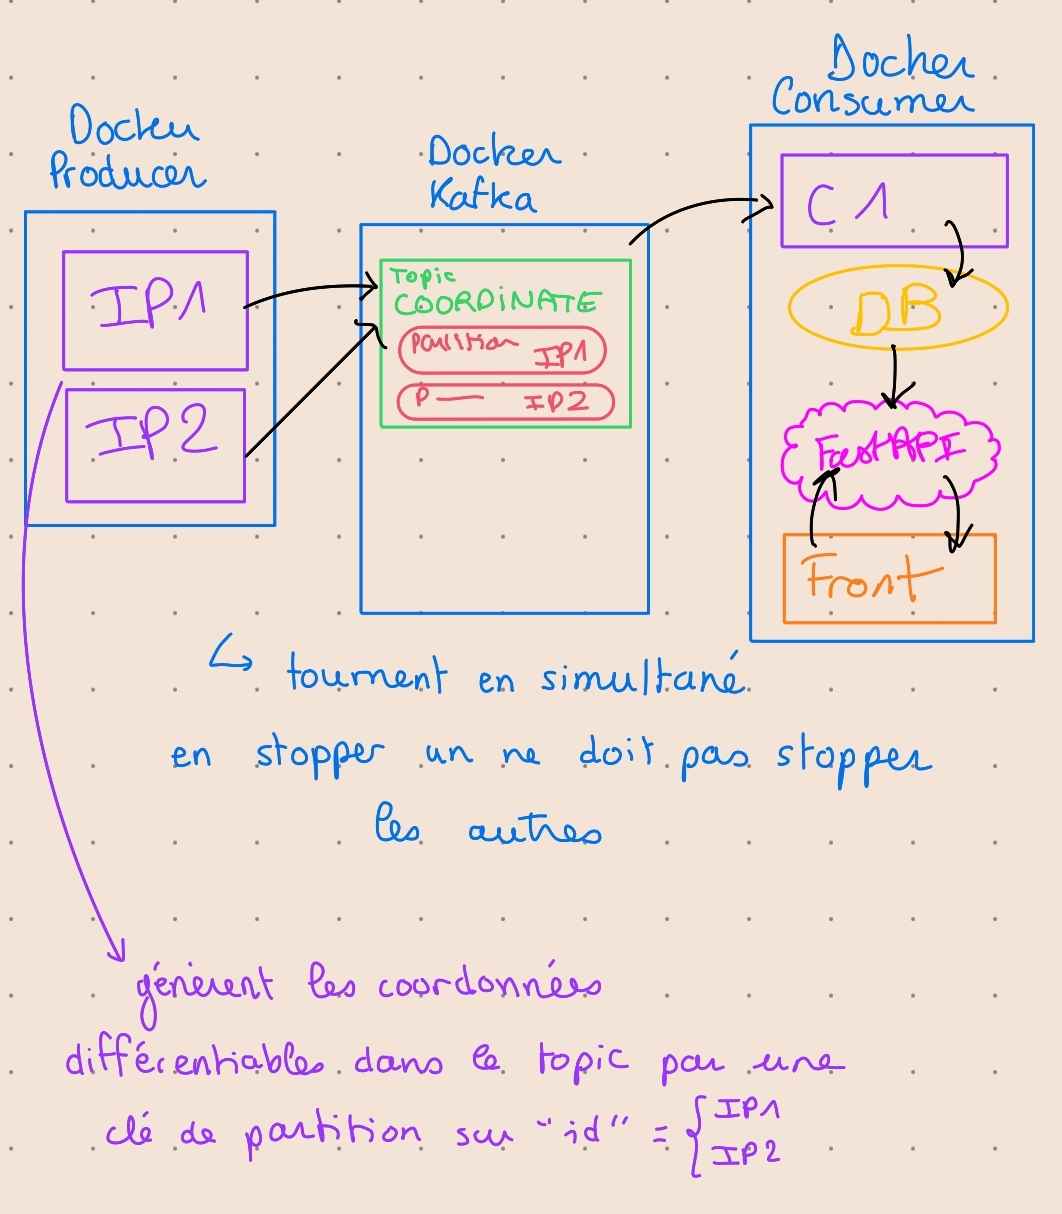 Docker
Producer
IP1
IP2
Docker
Kafka
Topic
COORDINATE
Partition IP1
P IP2
Docker
Consumer
C1
DB
FastAPI
Front
tournent en simultané
en stopper un ne doit pas stopper
les autres
génèrent les coordonnées
différentiables dans le topic par une
clé de partition sur "id" = { IP1
IP2